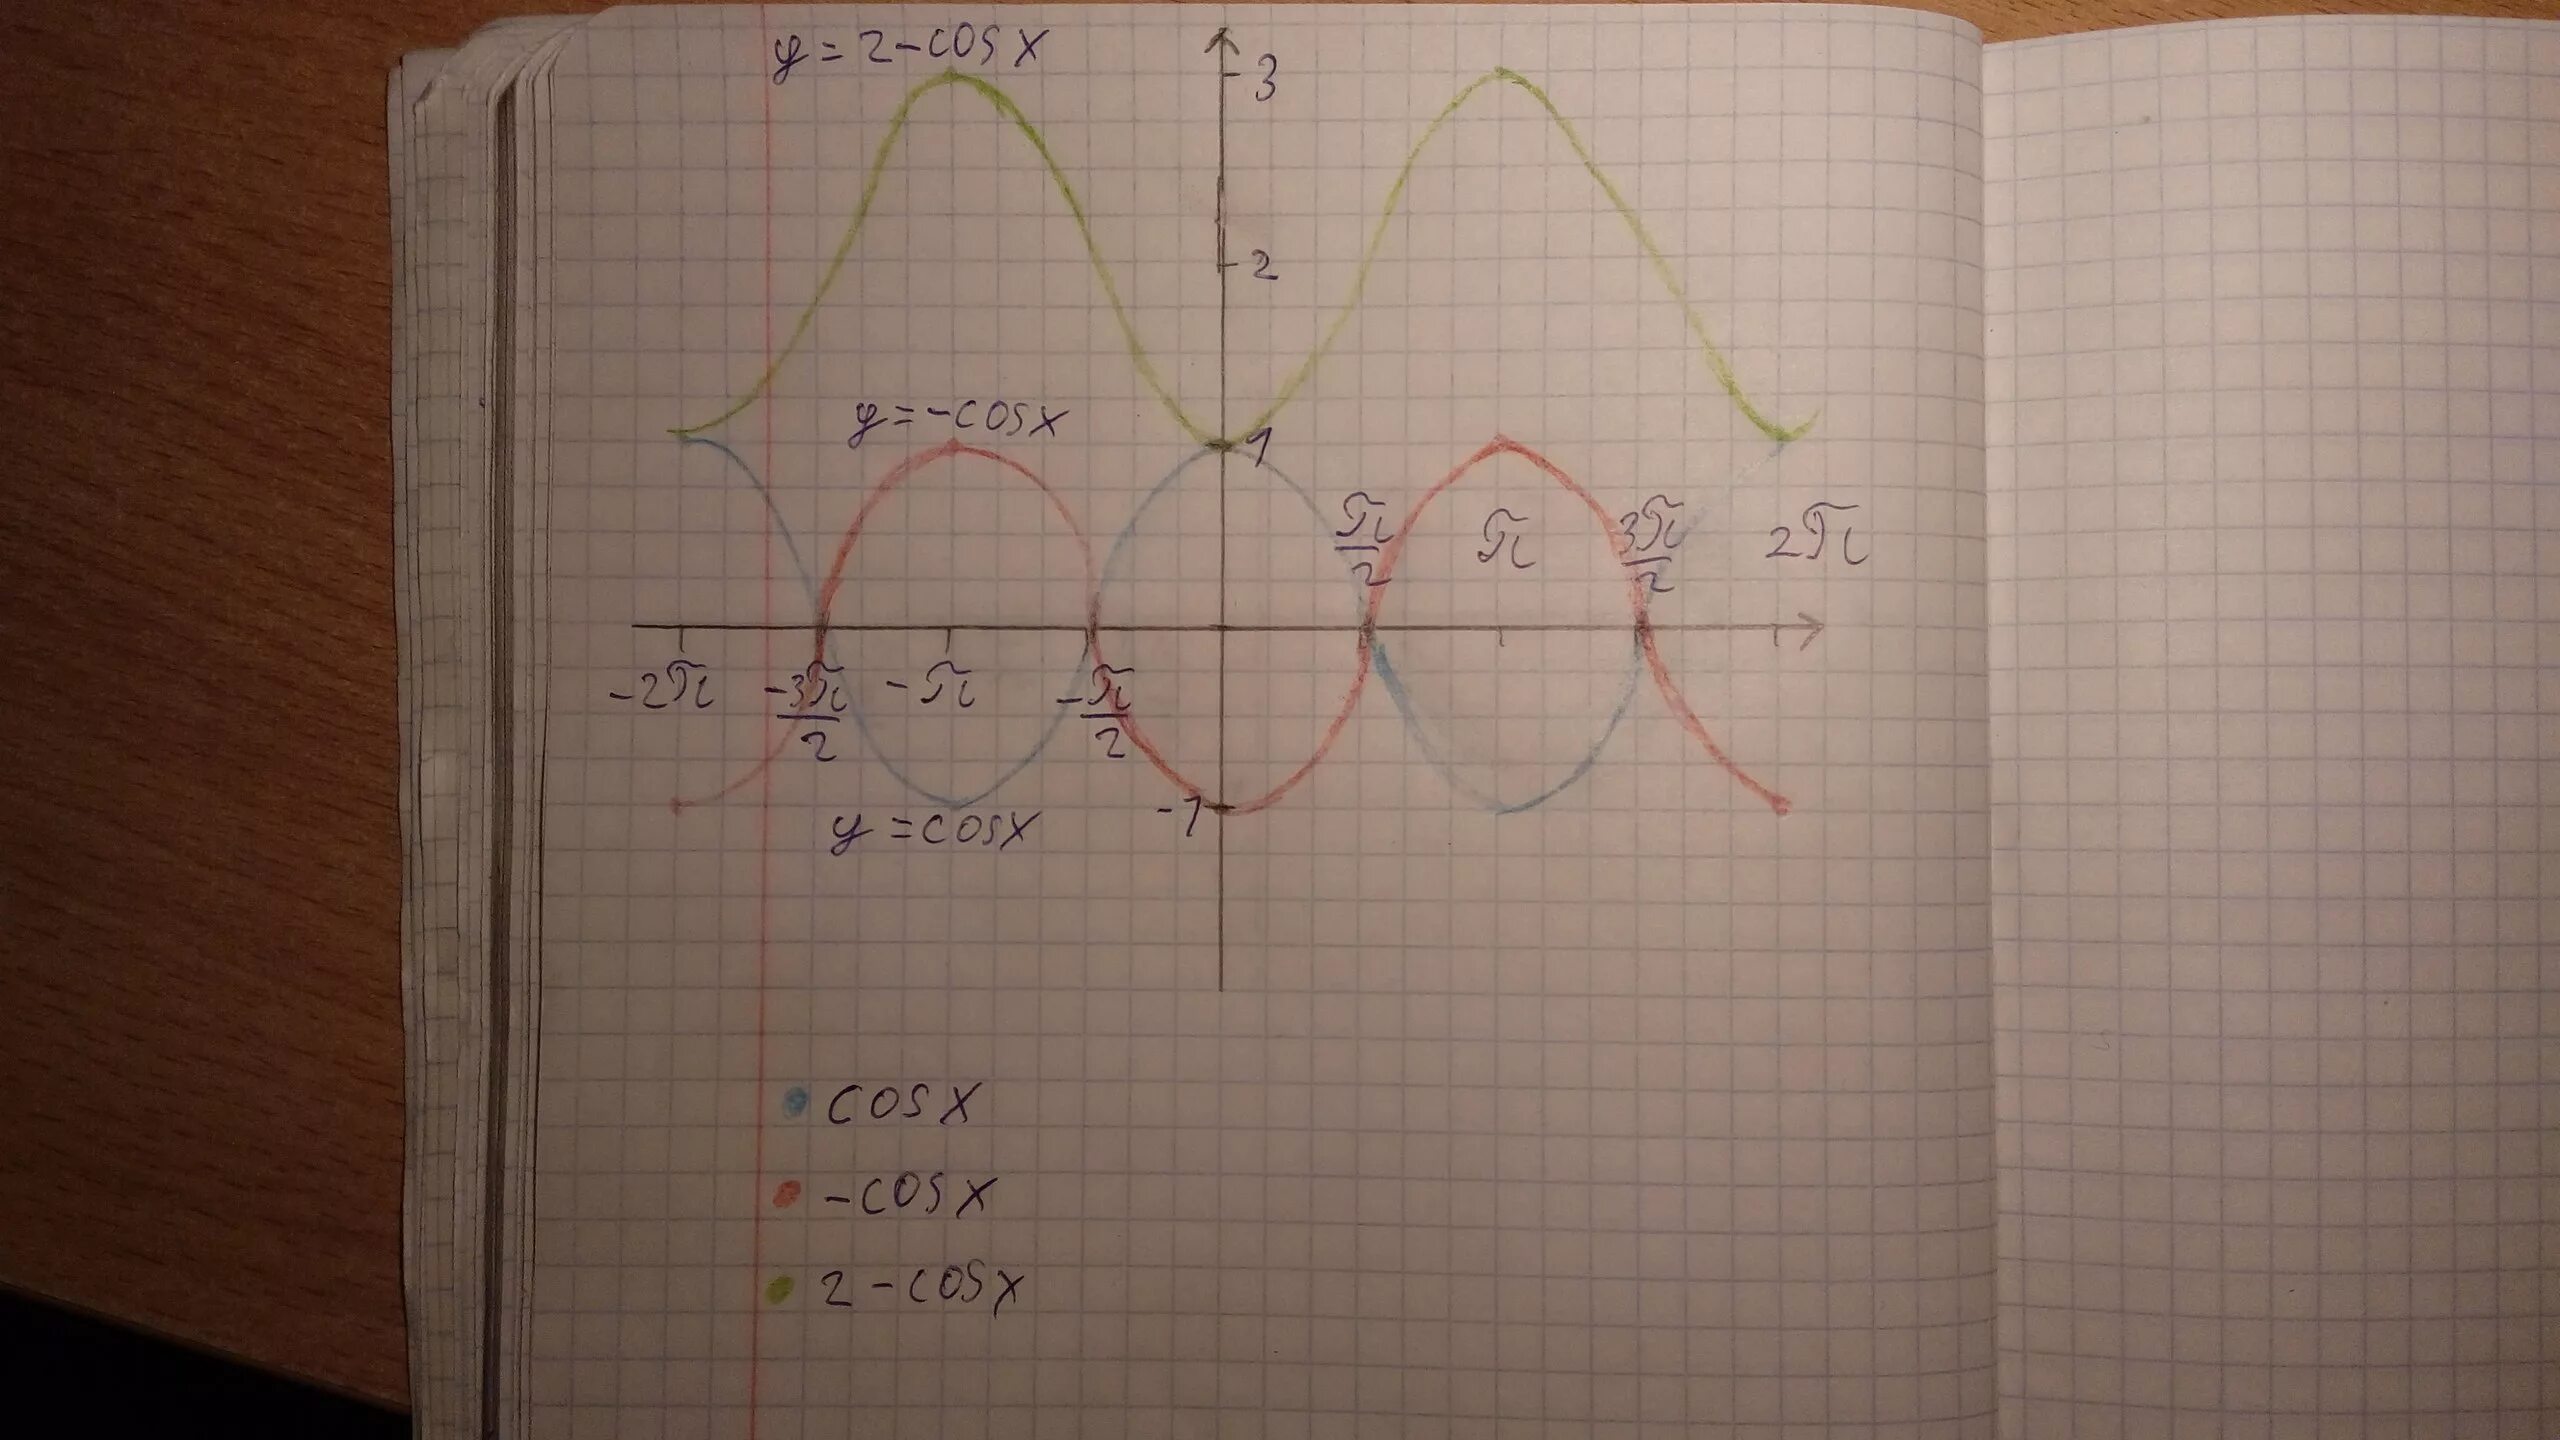 y = 2 - cos x
3
2
y = - cos x
1
π/2
π
3π/2
2π
-2π
-3π/2
-π
-π/2
-1
y = cos x
cos x
- cos x
2 - cos x